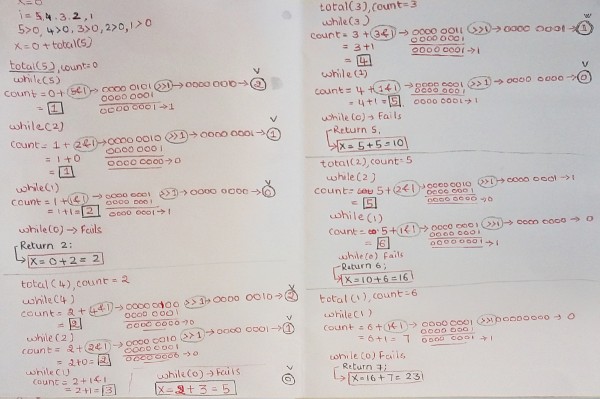 x=0
i=5,4,3,2,1
5>0, 4>0, 3>0, 2>0, 1>0
x=0+total(5)
total(5), count=0
while(5)
count=0+(5&1)→0000 0101 (>>1)→0000 0010→2
0000 0001
=1 0000 0001→1
while(2)
count=1+(2&1)→0000 0010 (>>1)→0000 0001→1
0000 0001
=1+0 0000 0000→0
=1
while(1)
count=1+(1&1)→0000 0001 (>>1)→0000 0000→0
0000 0001
=1+1=2 0000 0001→1
while(0)→Fails
Return 2;
x=0+2=2
total(4), count=2
while(4)
count=2+(4&1)→0000 0100 (>>1)→0000 0010→2
0000 0001
=2 0000 0000→0
while(2)
count=2+(2&1)→0000 0010 (>>1)→0000 0001→1
0000 0001
=2+0=2 0000 0000→0
while(1)
count=2+1&1
=2+1=3
0
while(0)→Fails
x=2+3=5
total(3), count=3
while(3)
count=3+(3&1)→0000 0011 (>>1)→0000 0001→1
0000 0001
=3+1 0000 0001→1
=4
while(1)
count=4+(1&1)→0000 0001 (>>1)→0000 0000→0
0000 0001
=4+1=5 0000 0001→1
while(0)→Fails
Return 5;
x=5+5=10
total(2), count=5
while(2)
count=5+(2&1)→0000 0010 (>>1)→0000 0001→1
0000 0001
=5 0000 0000→0
while(1)
count=5+(1&1)→0000 0001 (>>1)→0000 0000→0
0000 0001
=6 0000 0001→1
while(0) Fails
Return 6;
x=10+6=16
total(1), count=6
while(1)
count=6+(1&1)→0000 0001 (>>1)→0000 0000→0
0000 0001
=6+1=7 0000 0001→1
while(0) Fails
Return 7;
x=16+7=23